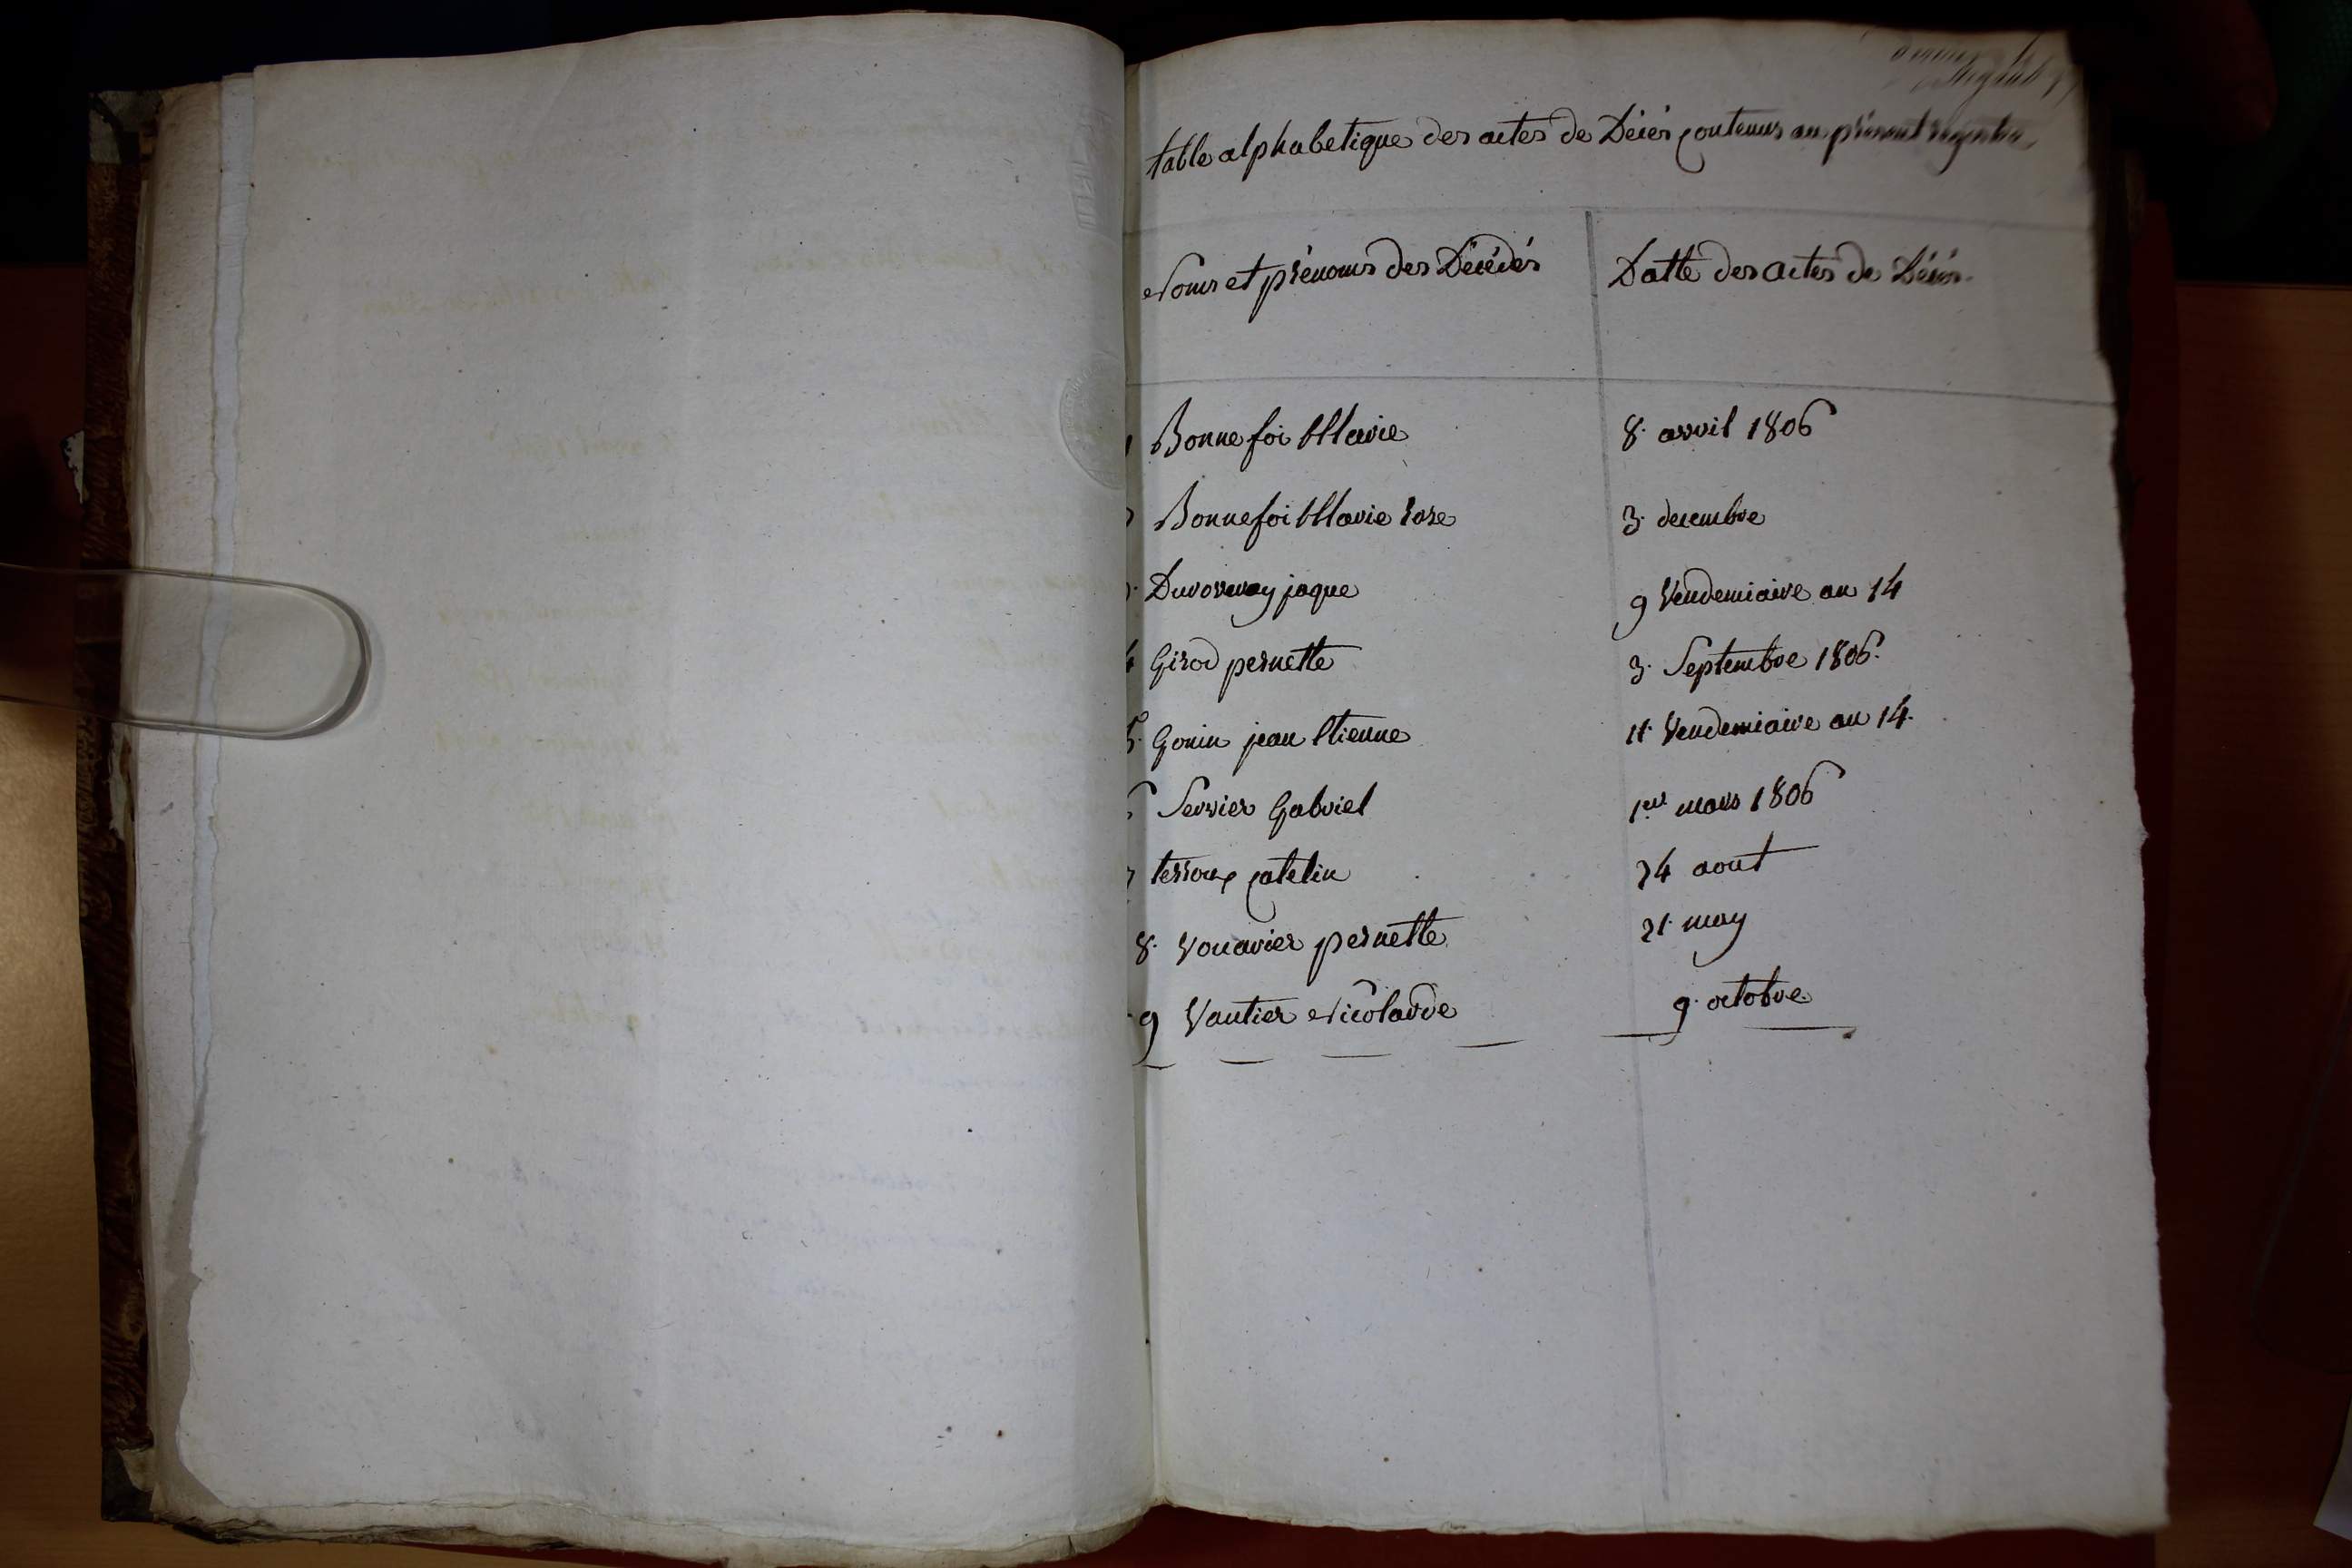 table alphabetique des actes de Décés contenus au présent registre
Noms et prénoms des Décédés
Datte des actes de Décés.
1 Bonnefoi Marie 8. avril 1806
2 Bonnefoi Marie rose 3. decembre
3. jaque 9 Vendemiaire an 14
4 Girod pernette 3. Septembre 1806.
5. Gonin jean Etienne 11. Vendemiaire an 14.
6 Servier Gabriel 1er mars 1806
7 terroux catelin 24 aout
8. Vouavier pernette 21. may
9 Vautier Nicolarde 9. octobre.